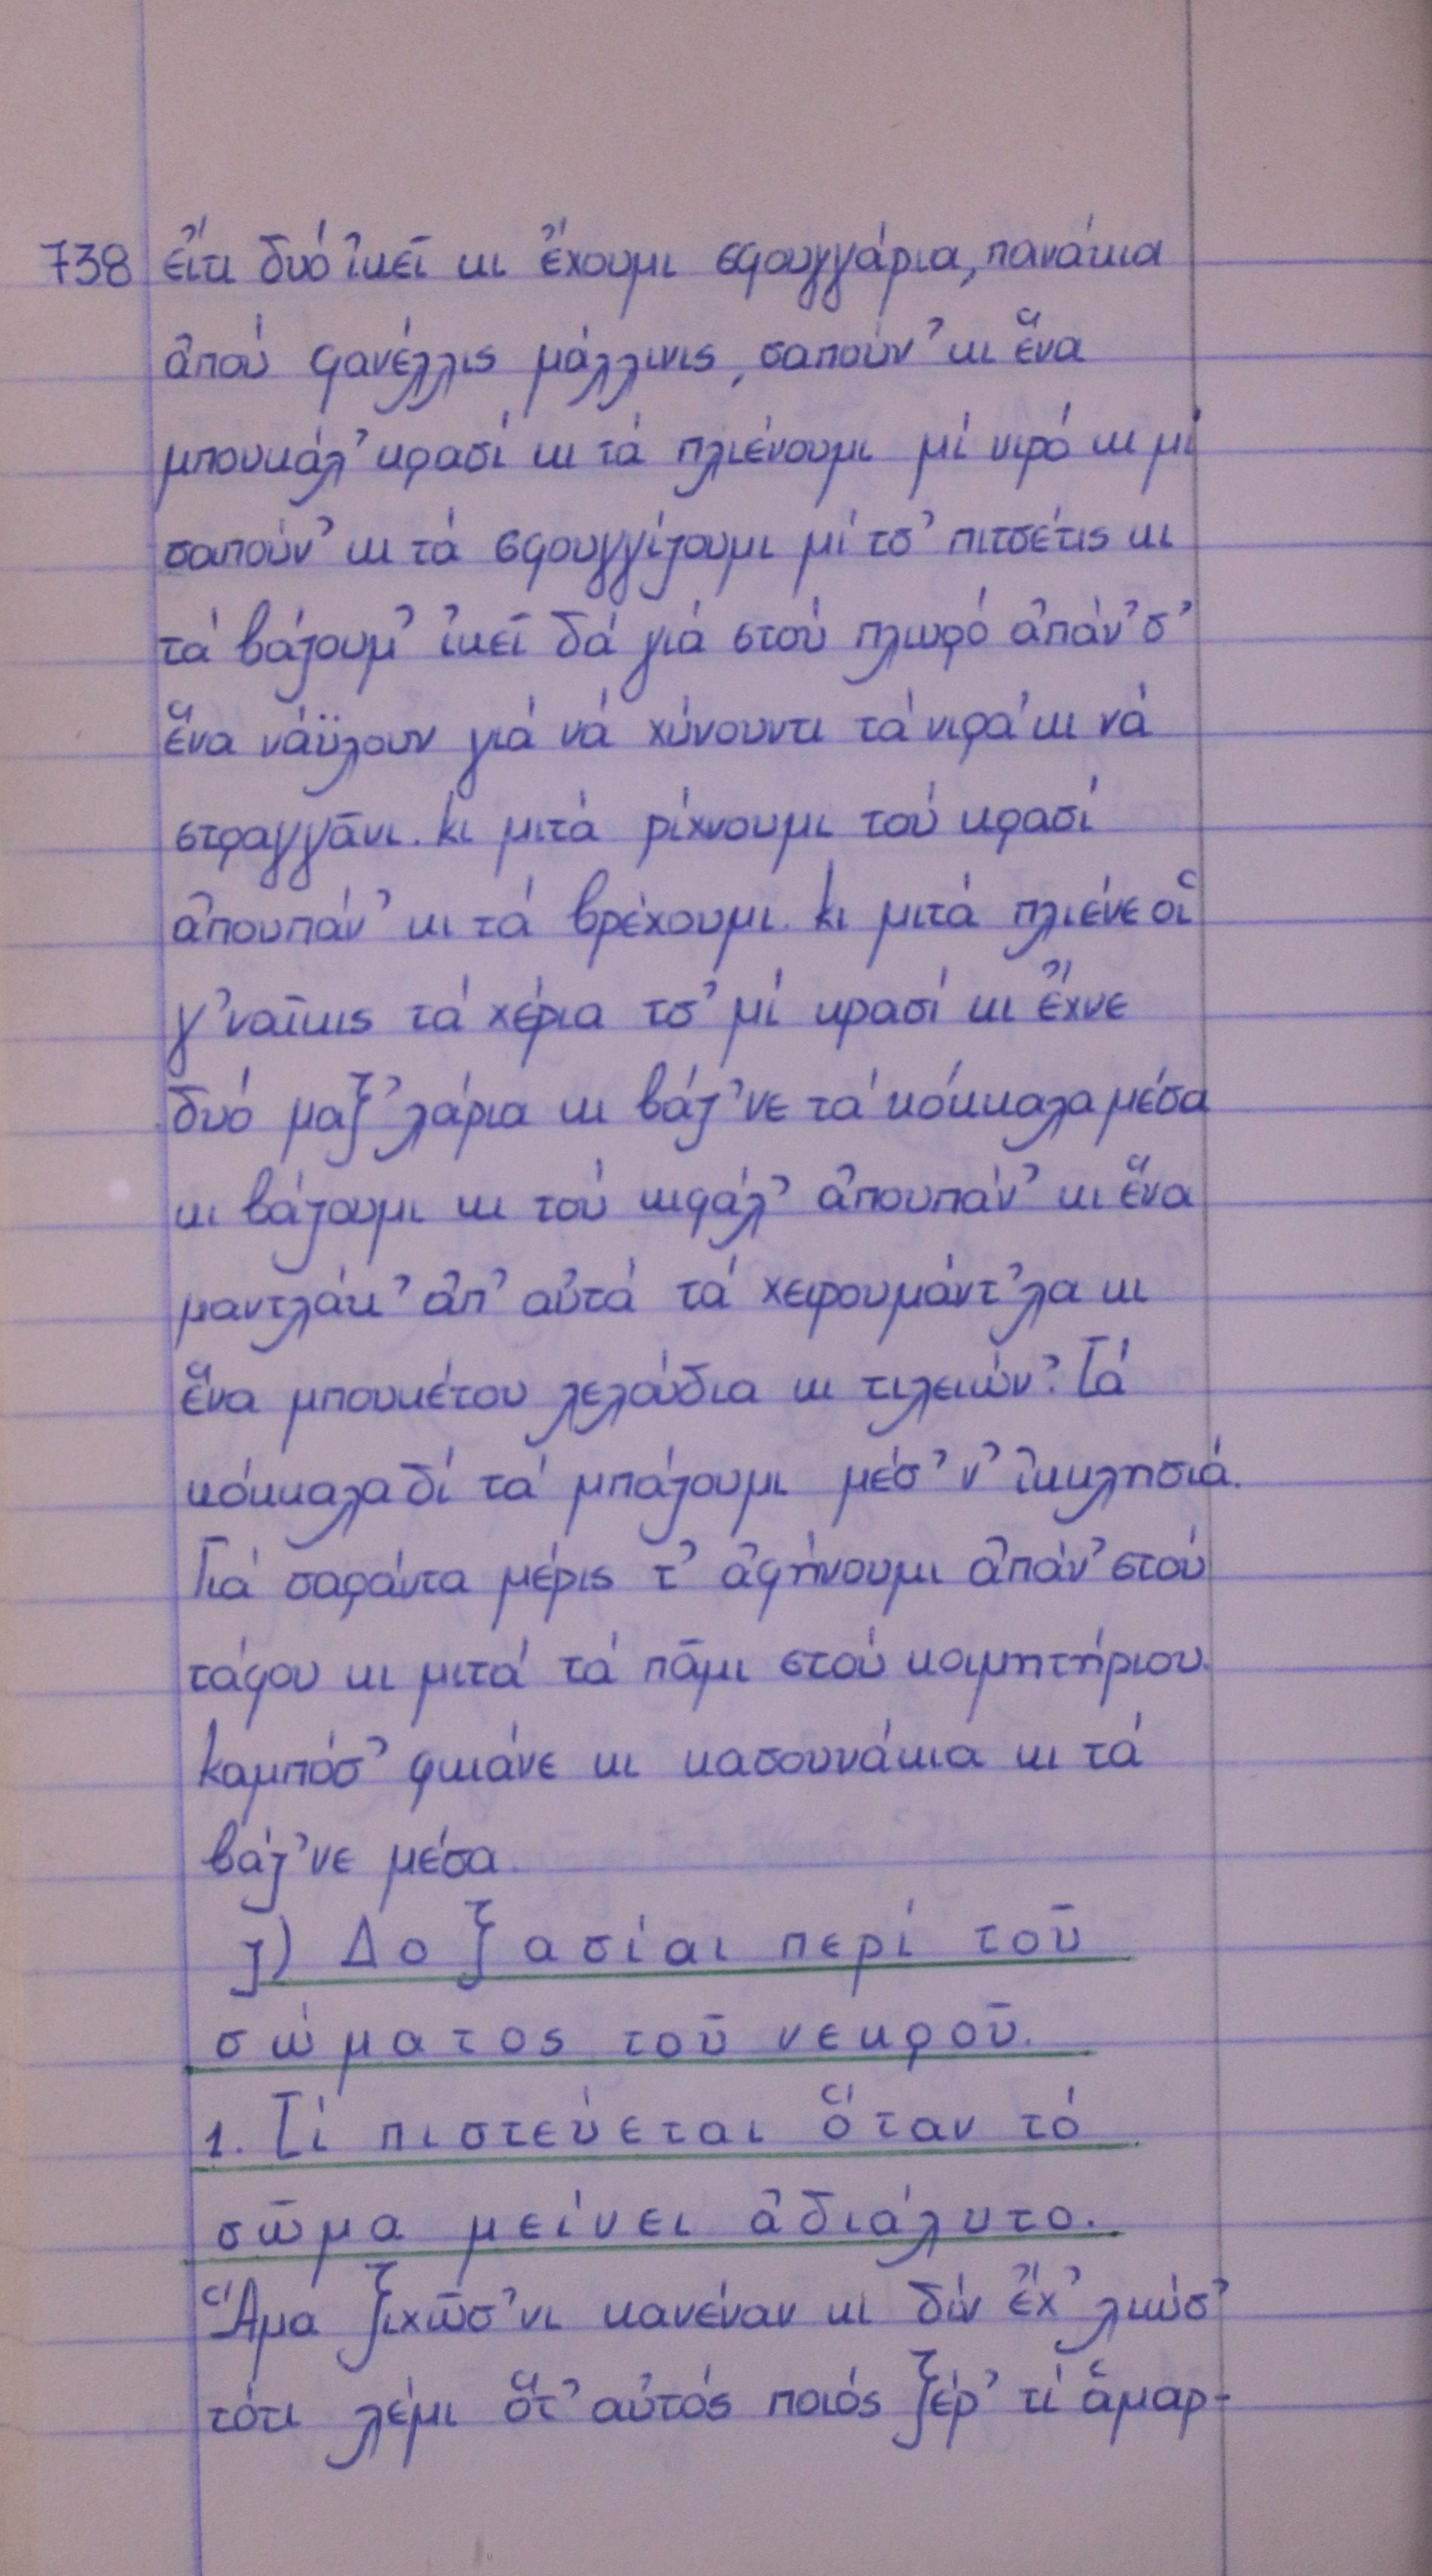 738 εἴτι δυό ἰκεῖ κι ἔχουμι σφουγγάρια, πανάκια
ἀπού φανέλλις μάλλινις, σαπούν' κι ἕνα
μπουκάλ' κρασί κι τά πλιένουμι μί νιρό κι μί
σαπούν' κι τά σφουγγίζουμι μί τσ' πιτσέτις κι
τά βάζουμ' ἰκεῖ δά γιά στού πλωφό ἀπάν' σ'
ἕνα νάϋλουν γιά νά χύνουντι τά νιρά κι νά
στραγγᾶνι. Κι μιτά ρίχνουμι τού κρασί
ἀπουπάν' κι τά βρέχουμι. Κι μιτά πλιένε οἱ
γ'ναῖκις τά χέρια τσ' μί κρασί κι ἔχνε
δυό μαξ'λάρια κι βάζ'νε τά κόκκαλα μέσα
κι βάζουμι κι τού κιφάλ' ἀπουπάν' κι ἕνα
μαντλάκ' ἀπ' αὐτά τά χερουμάντ'λα κι
ἕνα μπουκέτου λελούδια κι τιλειών'. Τά
κόκκαλα δί τά μπάζουμι μέσ' ν' ἰκκλησιά.
Γιά σαράντα μέρις τ' ἀφήνουμι ἀπάν' στού
τάφου κι μιτά τά πᾶμι στού κοιμητήριου.
Καμπόσ' φκιάνε κι κασουνάκια κι τά
βάζ'νε μέσα.
ζ) Δοξασίαι περί τοῦ
σώματος τοῦ νεκροῦ.
1. Τί πιστεύεται ὅταν τό
σῶμα μείνει ἀδιάλυτο.
Ἅμα ξιχῶσ'νι κανέναν κι δίν ἔχ' λιώσ'
τότι λέμι ὅτ' αὐτός ποιός ξέρ' τί ἁμαρ-